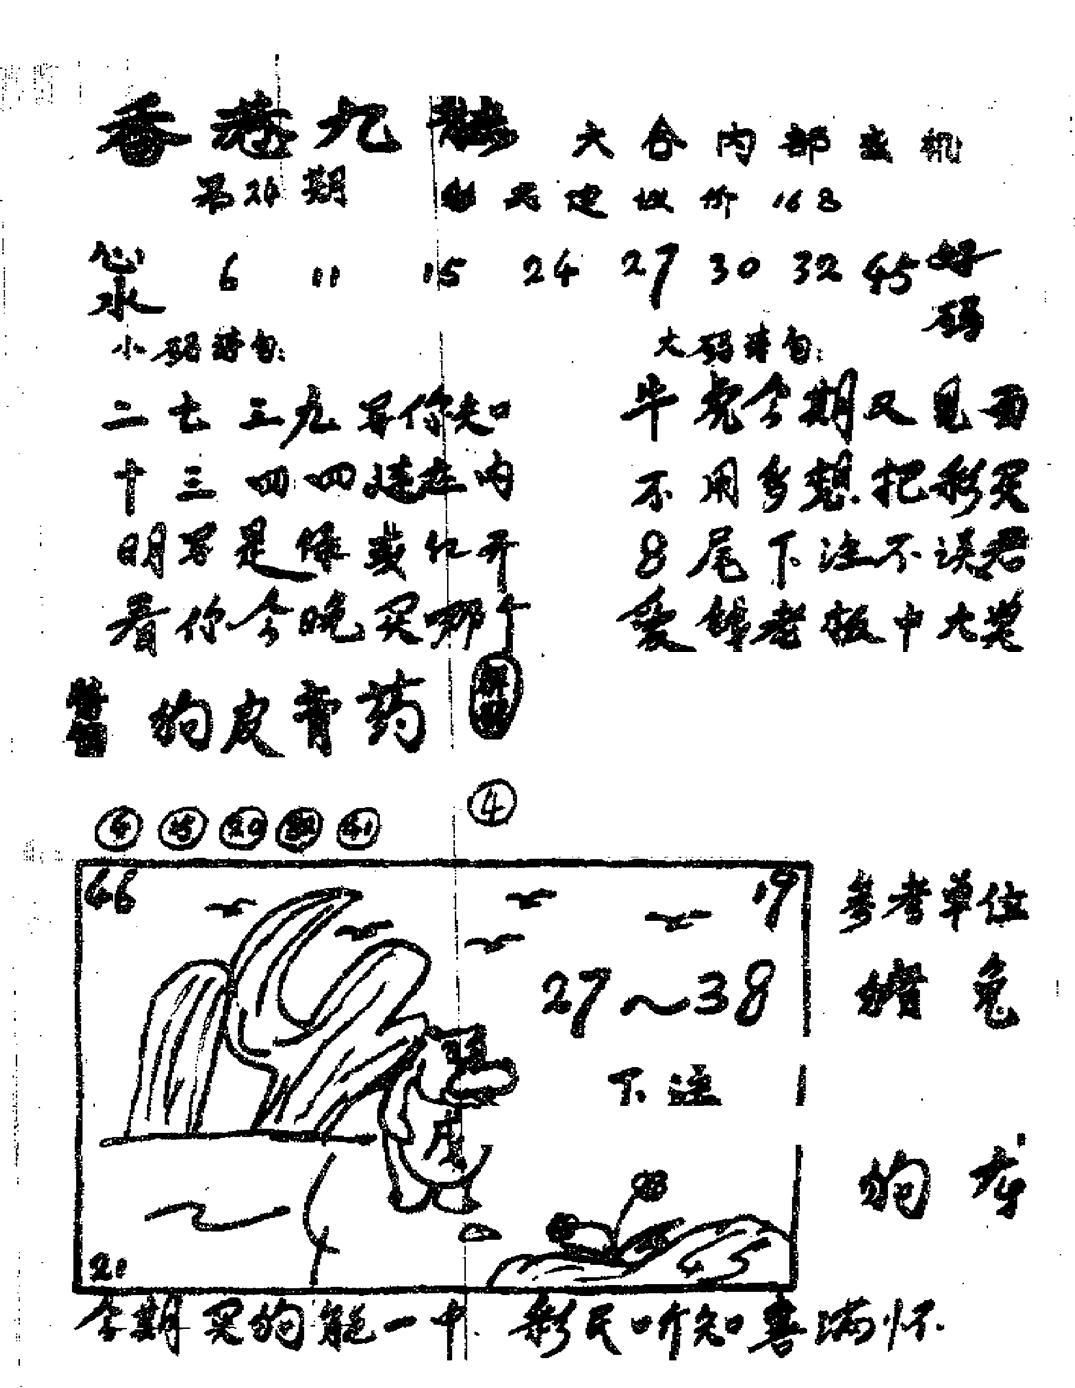 香港九龙 六合内部玄机
第26期 彩民建议价168
心水 6 11 15 24 27 30 32 45 好码
小码诗句: 大码诗句:
二七三九写你知 牛虎今期又见面
十三四四连在内 不用多想把彩买
明写是绿或红开 8尾下注不误君
看你今晚买哪个 爱钱老板中大奖
狗皮膏药
④
④ ⑮ ⑳ ㉜ ㊶
46 19 参考单位
27~38 猪 兔
下注
戌
狗
45
21
今期买狗能一中 彩民听知喜满怀